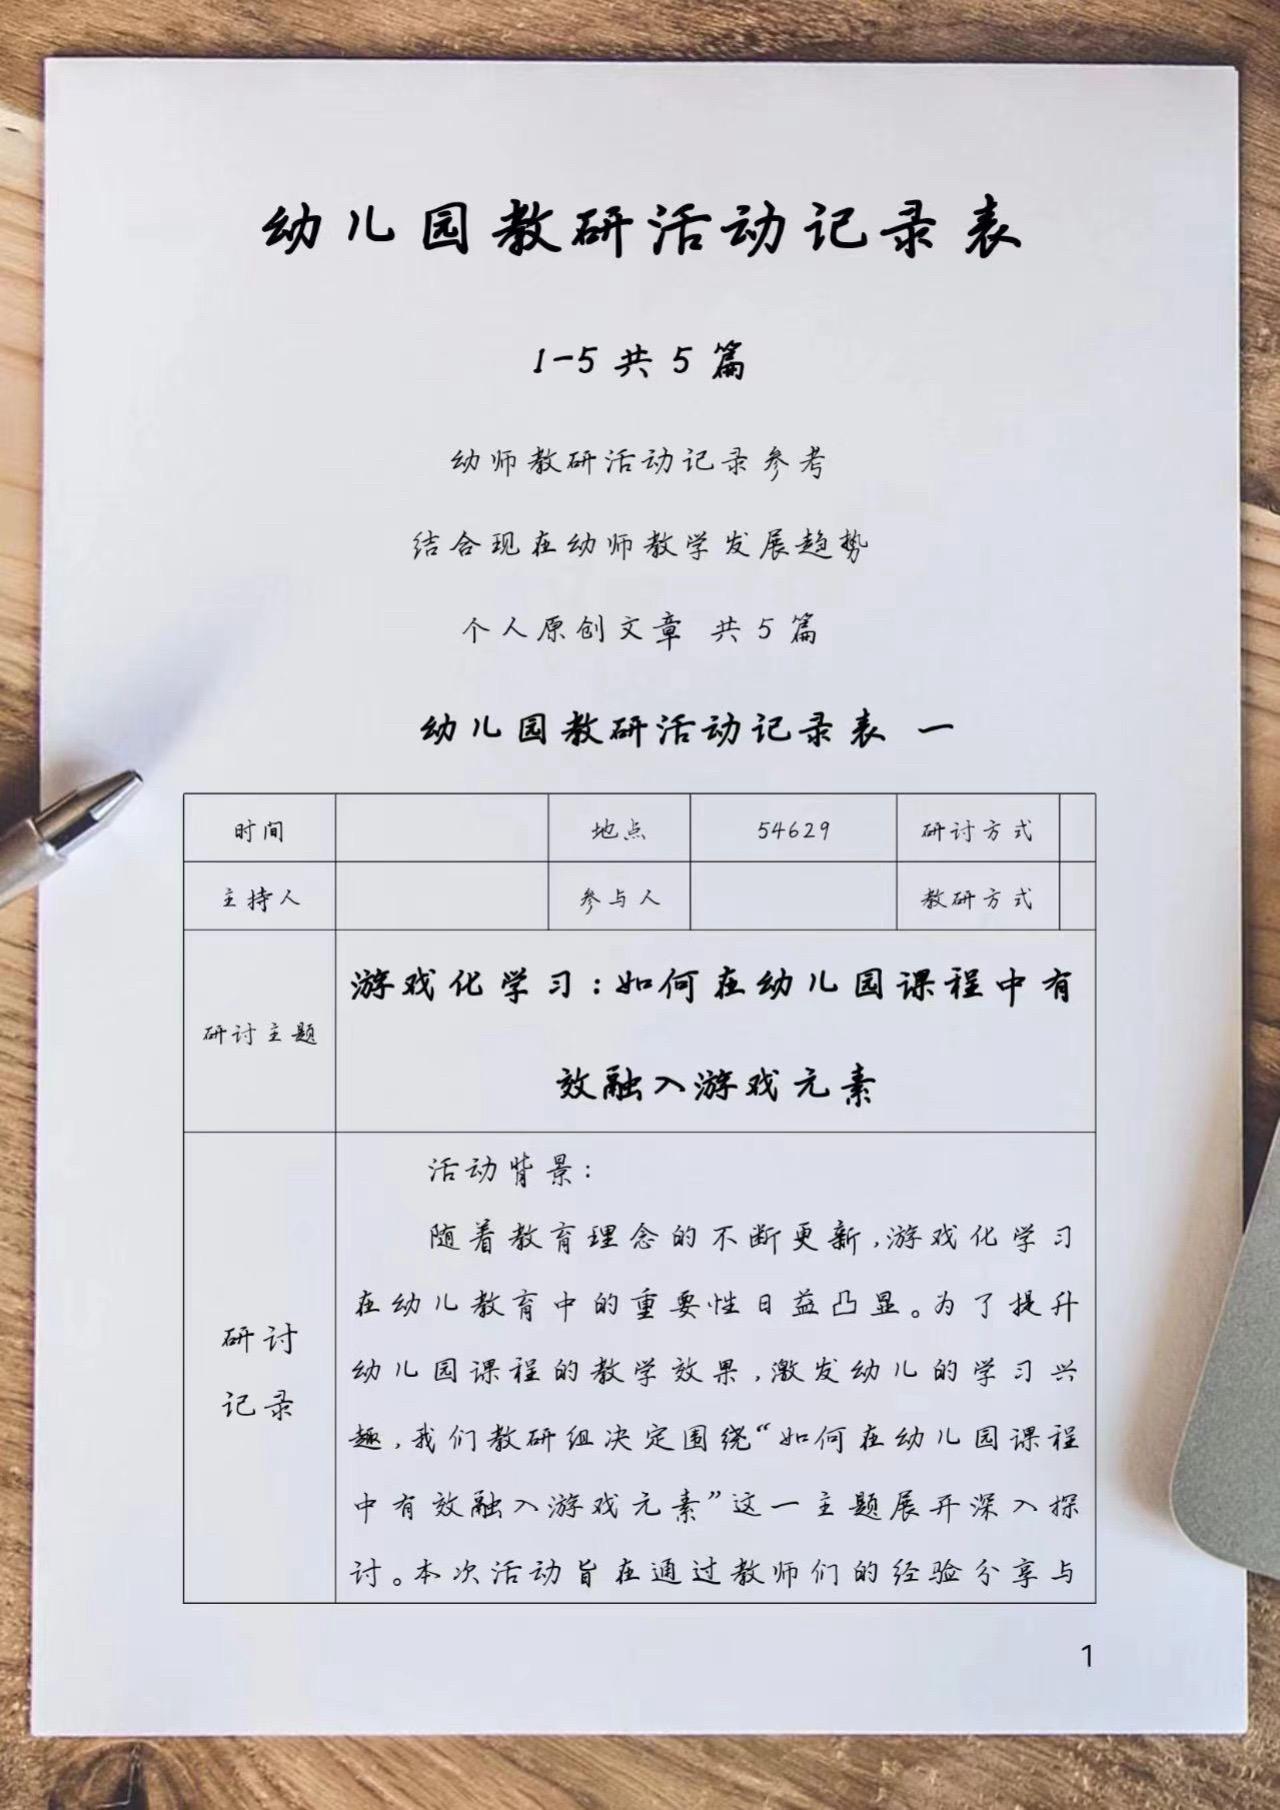 幼儿园教研活动记录表
1-5共5篇
幼师教研活动记录参考
结合现在幼师教学发展趋势
个人原创文章 共5篇
幼儿园教研活动记录表 一
时间 地点 54629 研讨方式
主持人 参与人 教研方式
研讨主题
游戏化学习:如何在幼儿园课程中有
效融入游戏元素
研讨
记录
活动背景:
随着教育理念的不断更新,游戏化学习
在幼儿教育中的重要性日益凸显。为了提升
幼儿园课程的教学效果,激发幼儿的学习兴
趣,我们教研组决定围绕“如何在幼儿园课程
中有效融入游戏元素”这一主题展开深入探
讨。本次活动旨在通过教师们的经验分享与
1